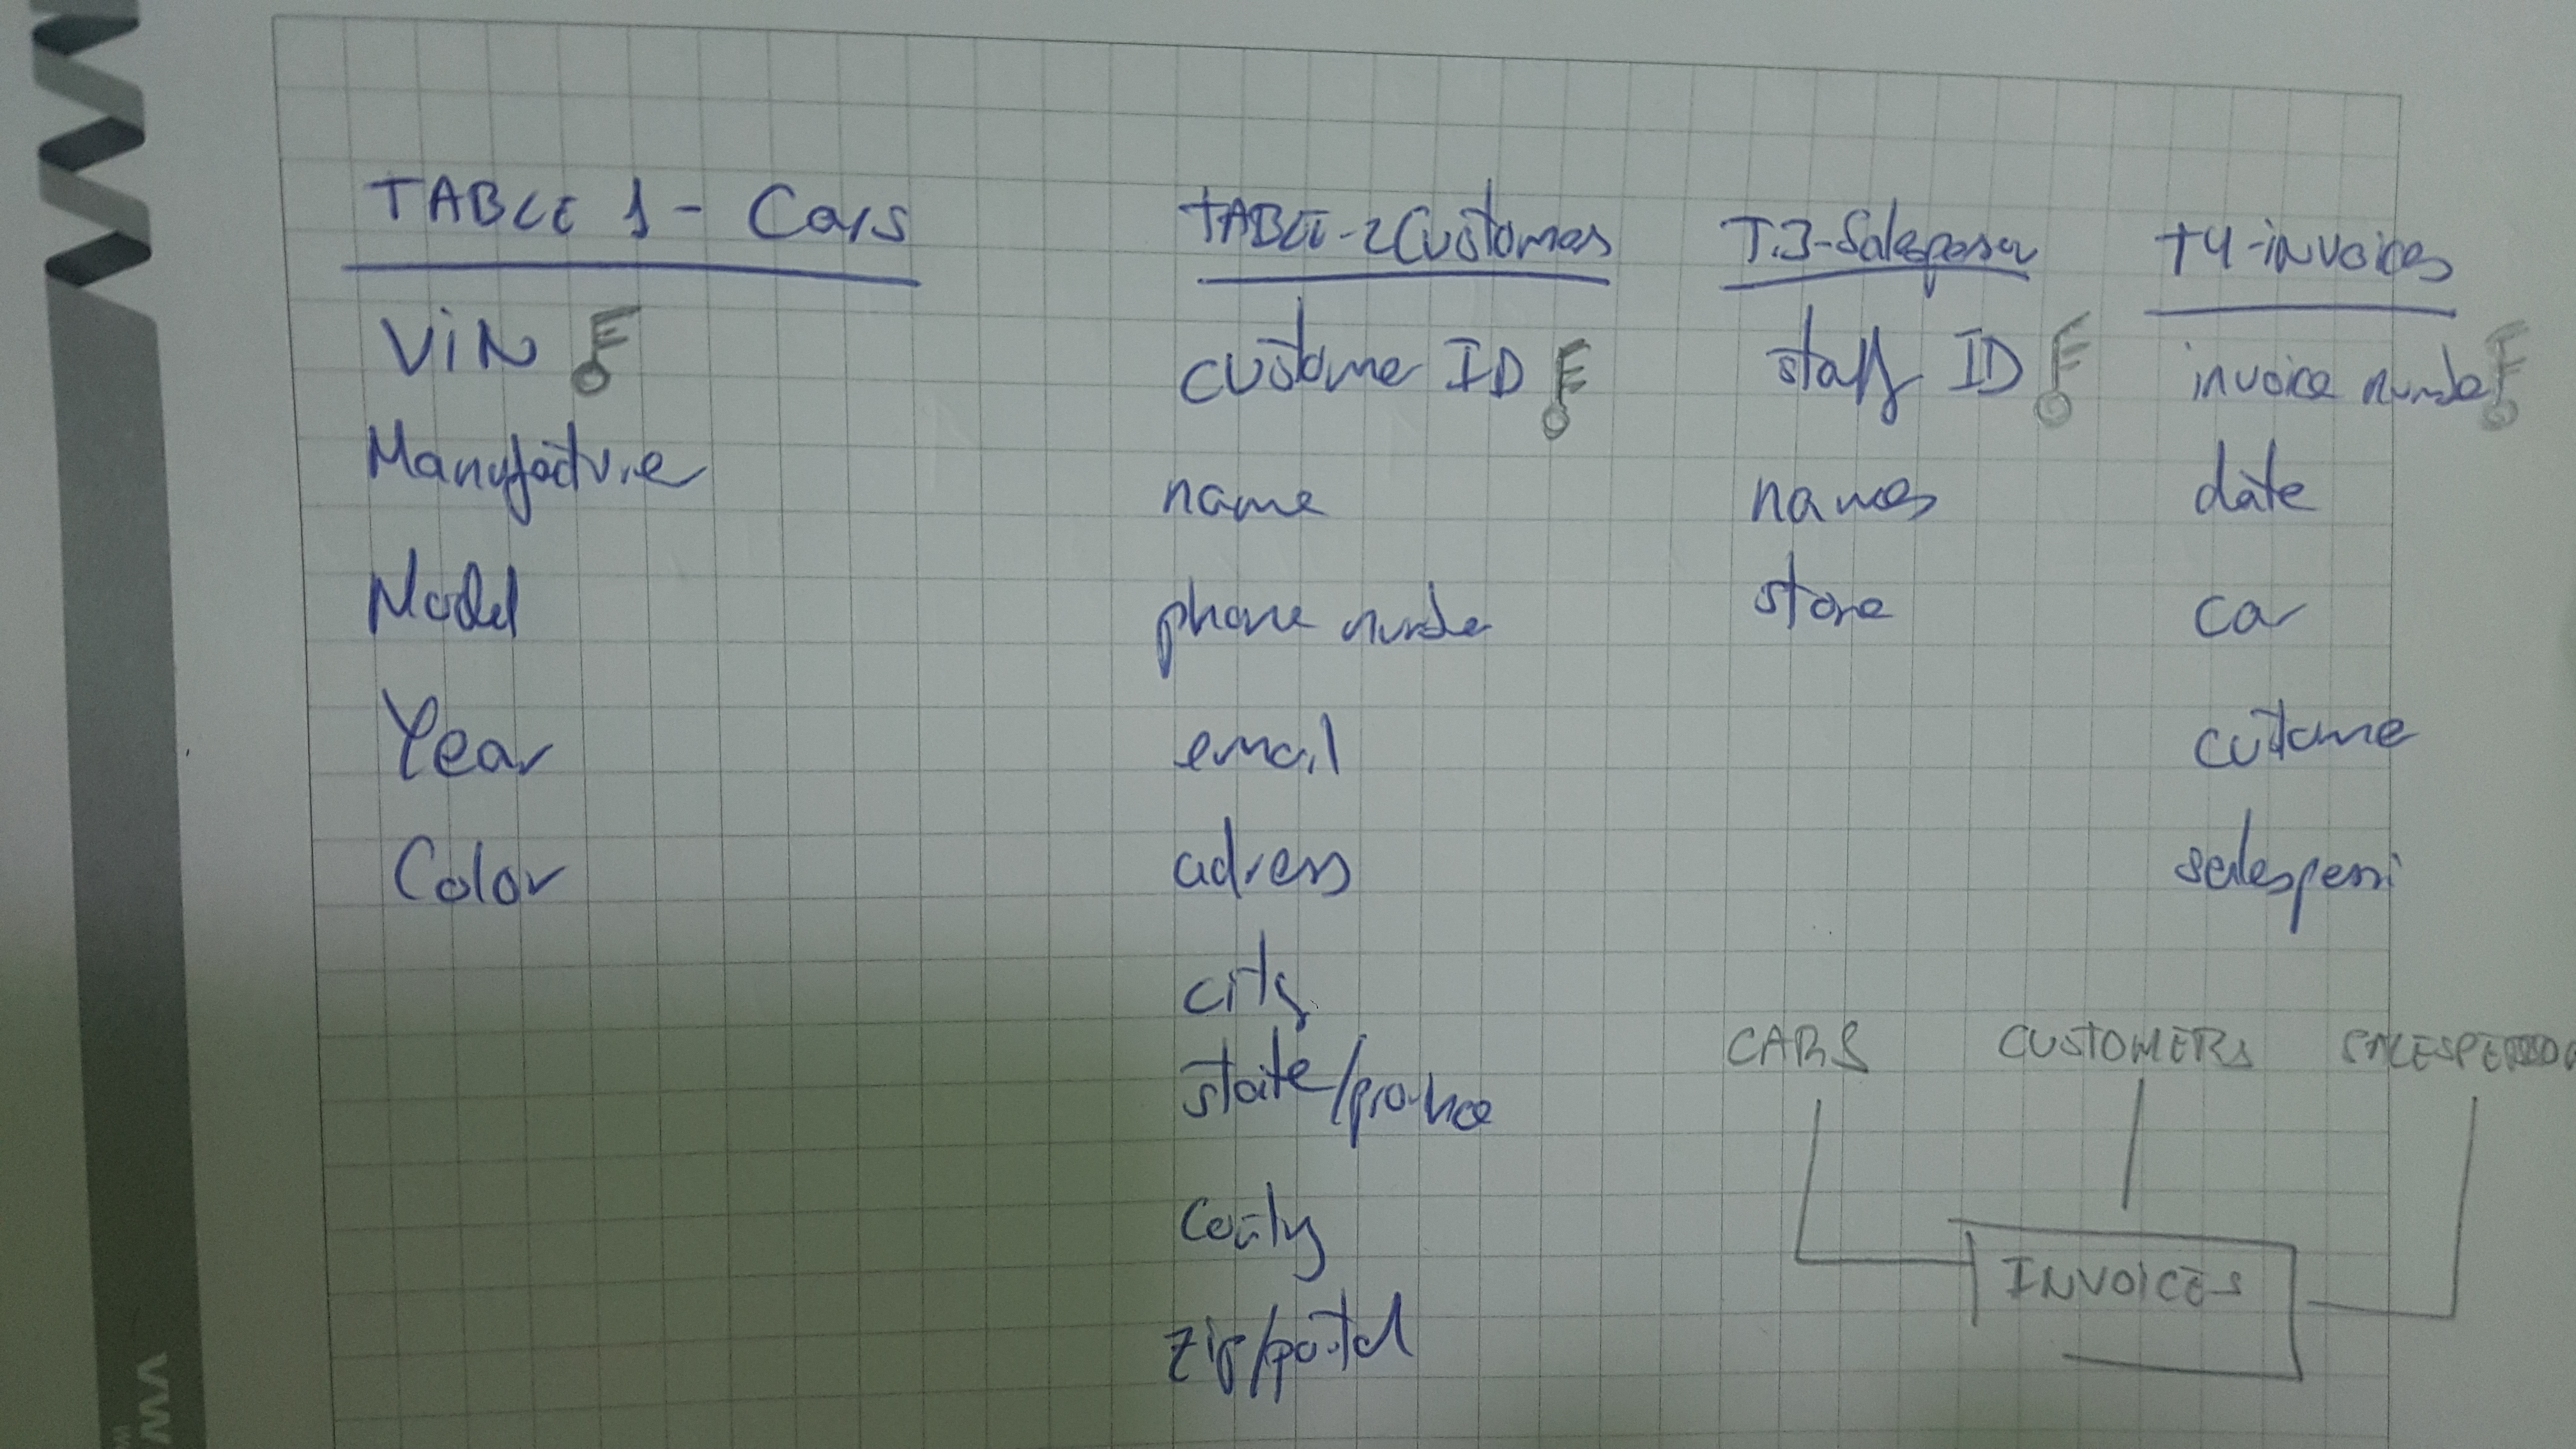 TABLE 1 - Cars
VIN
Manufacture
Model
Year
Color
TABLE-2 Customers
custome ID
name
phone number
email
adress
city
state/province
zip/postal
T.3-Salesperson
staff ID
names
store
T4-invoices
invoice number
date
car
cutome
CARS
CUSTOMERS
INVOICES